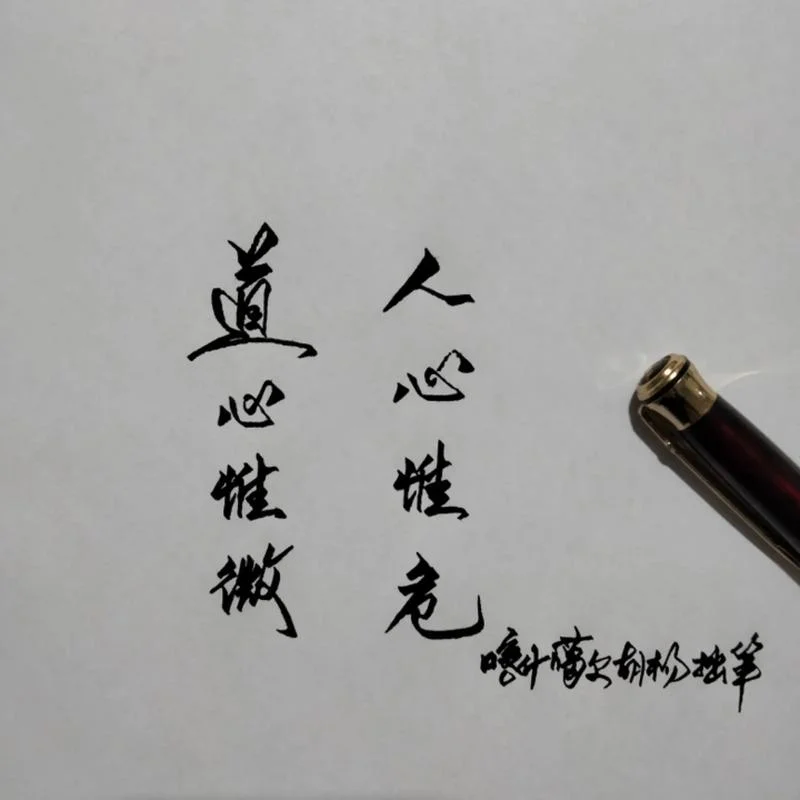 人心惟危
道心惟微
喀什噶尔胡杨拙笔